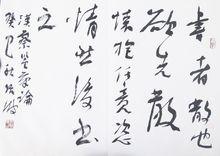 書者散也
欲先散
懷抱任意恣
情然後書
之
漢蔡邕筆論
癸巳秋